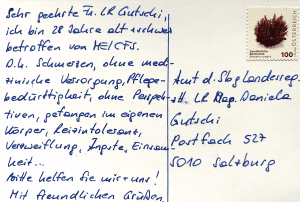 Sehr geehrte Fr. LR Gutschi,
ich bin 28 Jahre alt + schwer
betroffen von ME/CFS.
D.h. Schmerzen, ohne medi-
zinische Versorgung, Pflege-
bedürftigkeit, ohne Perspek-
tiven, gefangen im eigenen
Körper, Reizintoleranz,
Verzweiflung, Ängste, Einsam-
keit...
Bitte helfen Sie mir + uns!
Mit freundlichen Grüßen
ÖSTERREICH
100
Amt d. Sbg Landesreg.
LR Mag. Daniela
Gutschi
Postfach 527
5010 Salzburg